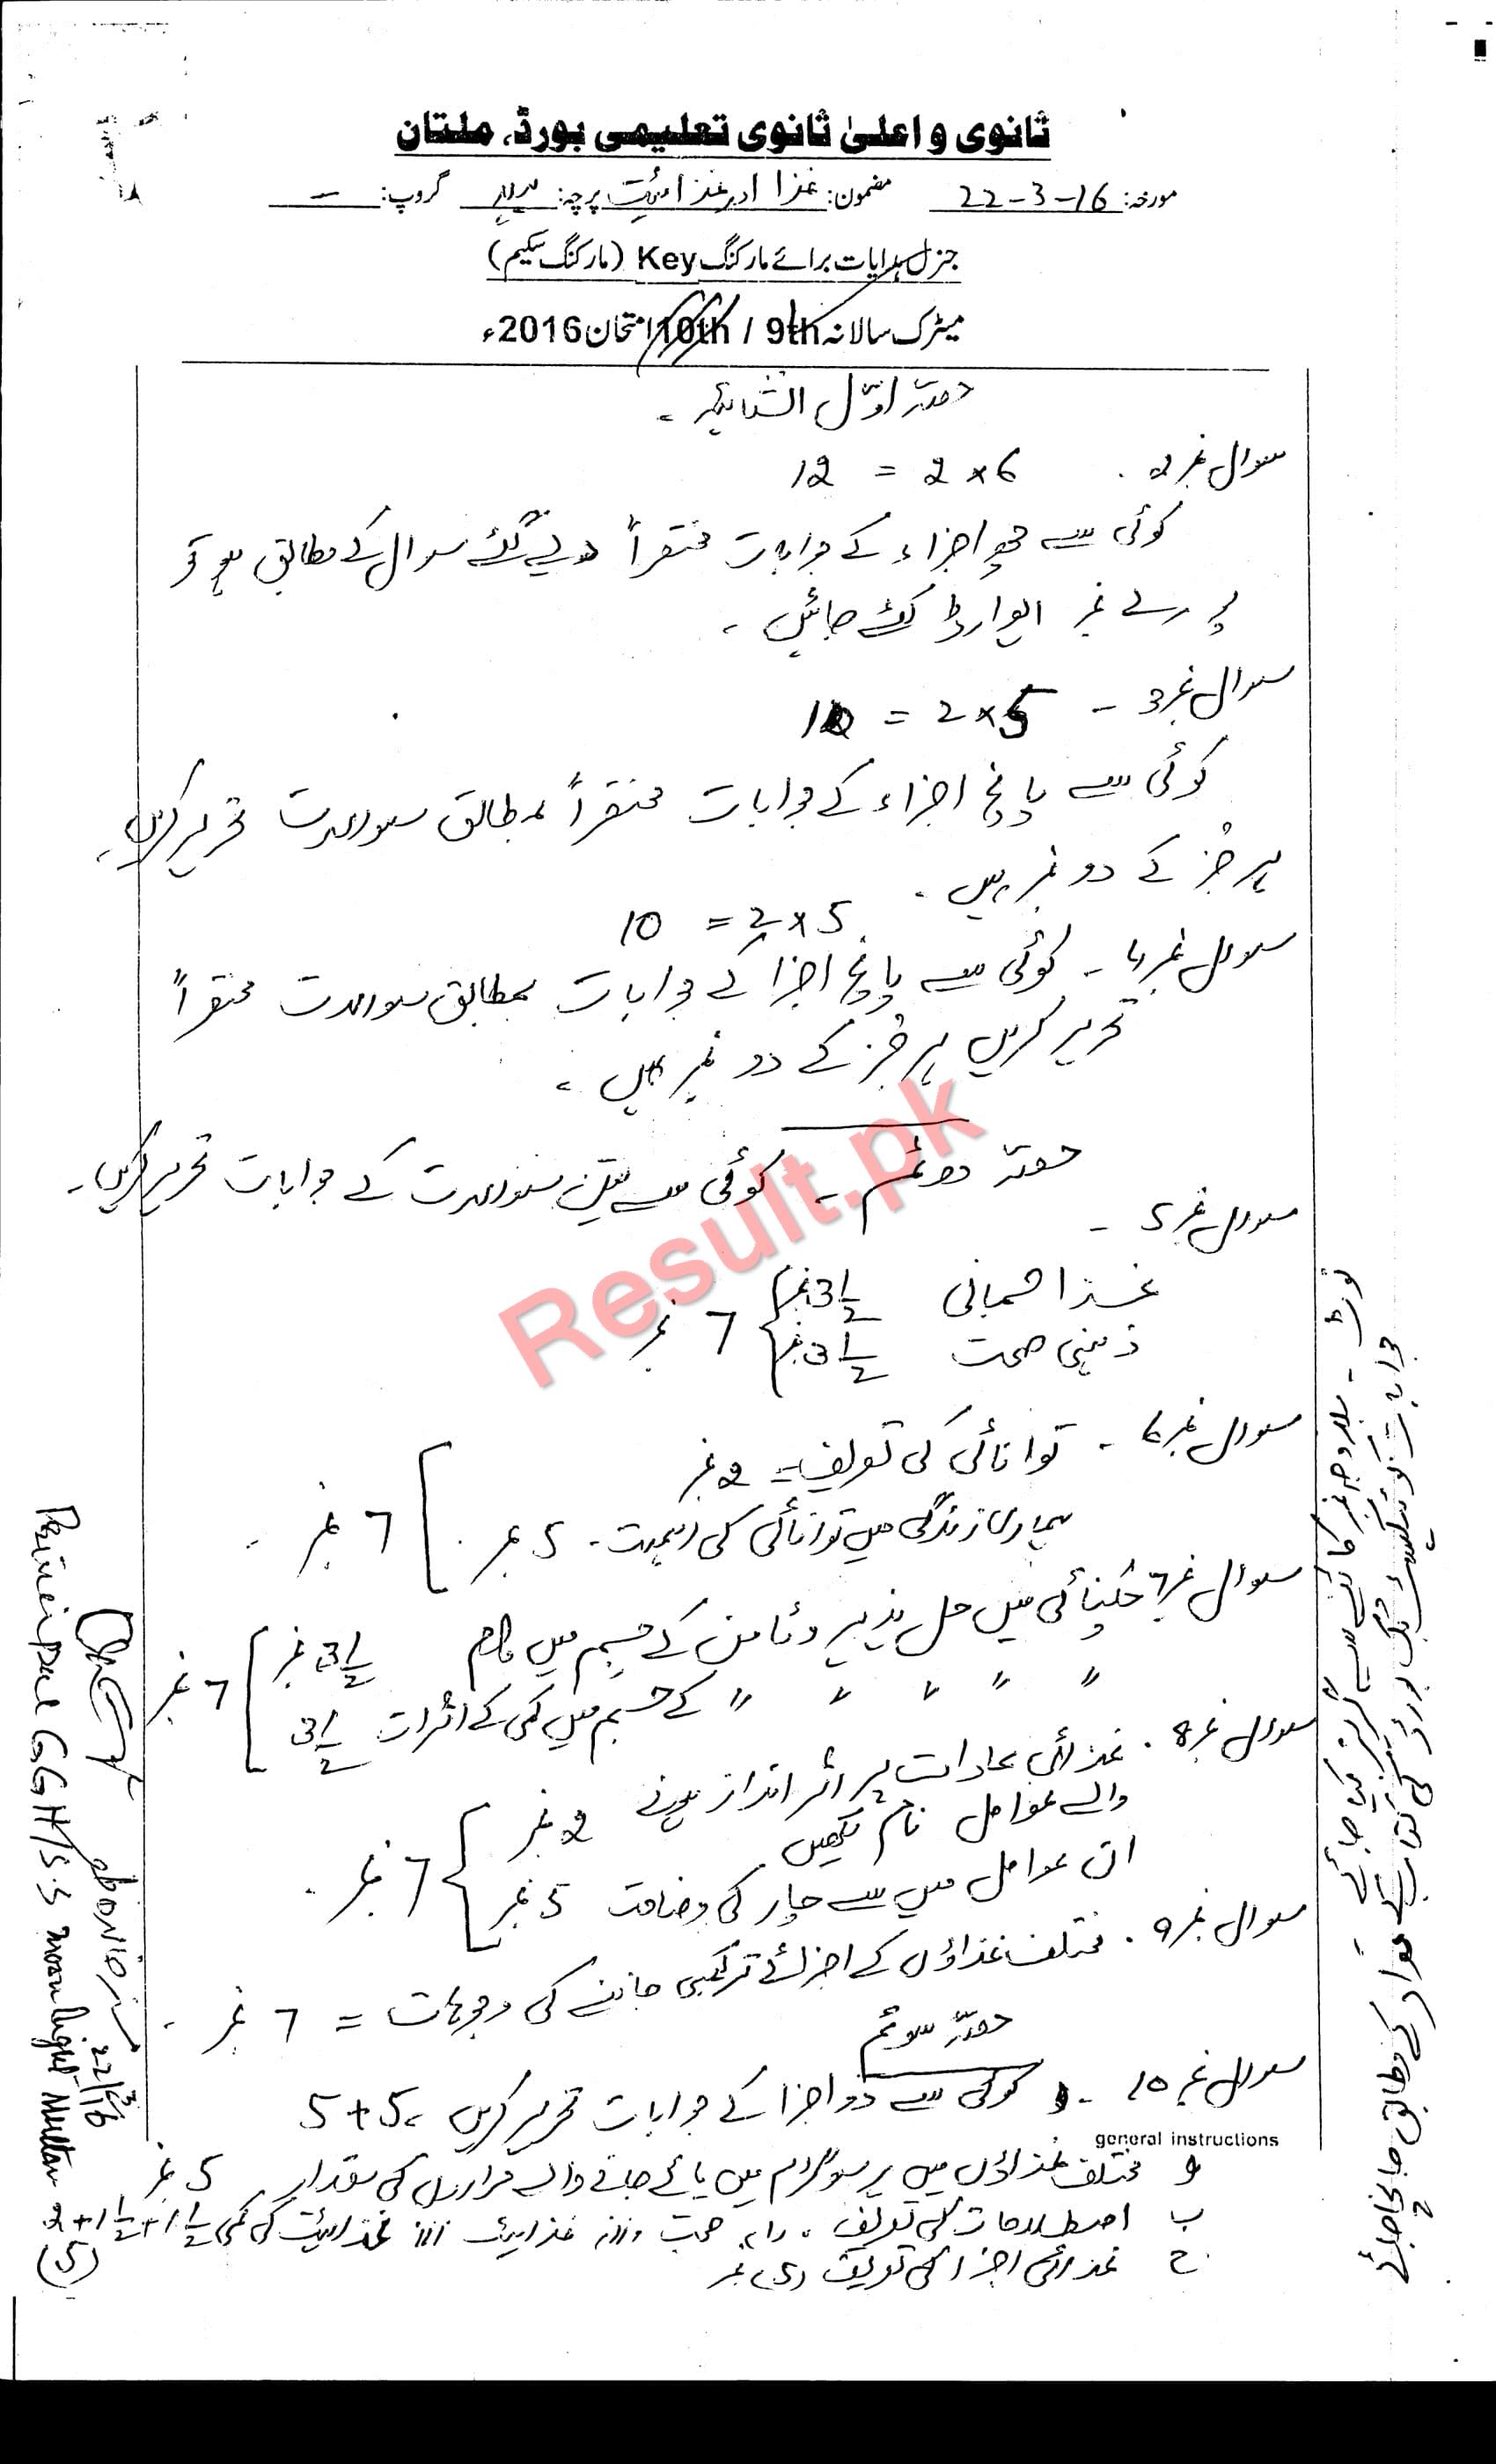 ثانوی و اعلیٰ ثانوی تعلیمی بورڈ، ملتان
مورخہ: 22-3-16 مضمون: غذا اور غذائیت پرچہ: گروپ: –
جنرل ہدایات برائے مارکنگ Key (مارکنگ سکیم)
میٹرک سالانہ 9th / 10th امتحان 2016ء
حصہ اوّل انشائیہ۔
سوال نمبر 2. 12 = 2×6
کوئی سے چھ اجزاء کے جوابات مختصراً دیے گئے سوال کے مطابق ہو تو
پورے نمبر ایوارڈ کئے جائیں۔
سوال نمبر 3 – 10 = 2×5
کوئی سے پانچ اجزاء کے جوابات مختصراً بمطابق سوالات تحریر کریں۔
ہر جُز کے دو نمبر ہیں۔
10 = 2×5
سوال نمبر 4 - کوئی سے پانچ اجزا کے جوابات بمطابق سوالات مختصراً
تحریر کریں ہر جُز کے دو نمبر ہیں۔
حصہ دوئم - کوئی سے تین سوالات کے جوابات تحریر کریں۔
سوال نمبر 5 -
غذا جسمانی 3½ نمبر
ذہنی صحت 3½ نمبر } 7 نمبر
سوال نمبر 6 - توانائی کی تعریف = 2 نمبر
ہماری زندگی میں توانائی کی اہمیت - 5 نمبر ] 7 نمبر
سوال نمبر 7 چکنائی میں حل پذیر وٹامن کے جسم میں کام 3½ نمبر
〃 〃 〃 〃 〃 کے جسم میں کمی کے اثرات 3½ ] 7 نمبر
سوال نمبر 8. غذائی عادات پر اثر انداز ہونے
والے عوامل نام لکھیں 2 نمبر
ان عوامل میں سے چار کی وضاحت 5 نمبر } 7 نمبر
سوال نمبر 9. مختلف غذاؤں کے اجزائے ترکیبی جاننے کی وجوہات = 7 نمبر
حصہ سوئم
سوال نمبر 10 - کوئی سے دو اجزا کے جوابات تحریر کریں 5+5
general instructions
مختلف غذاؤں میں پر سو گرام میں پائے جانے والے حراروں کی مقدار 5 نمبر
ب اصطلاحات کی تعریف۔ صحت غذائیت غذائیت کی کمی 2+1½+1½
(5)
ج غذائی اجزا کی تعریف (5) نمبر
نوٹ - بلاوجہ نمبر کاٹنے سے گریز کیا جائے
جوابات کو ٹیکسٹ بک بورڈ کی کتاب کے مواد کے مطابق جانچا جائے
22/3/16
Principal GGH/S.S Multan
Result.pk